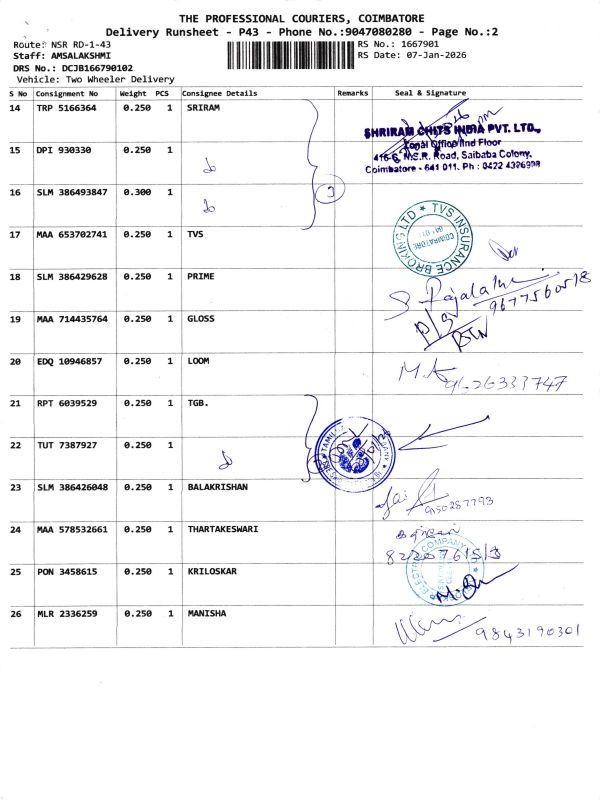 THE PROFESSIONAL COURIERS, COIMBATORE
Delivery Runsheet - P43 - Phone No.:9047080280 - Page No.:2
Route: NSR RD-1-43 RS No.: 1667901
Staff: AMSALAKSHMI RS Date: 07-Jan-2026
DRS No.: DCJB166790102
Vehicle: Two Wheeler Delivery
S No Consignment No Weight PCS Consignee Details Remarks Seal & Signature
14 TRP 5166364 0.250 1 SRIRAM
SHRIRAM CHITS INDIA PVT. LTD.,
Zonal Office IInd Floor
416-6, N.S.R. Road, Saibaba Colony,
Coimbatore - 641 011. Ph : 0422 4326998
15 DPI 930330 0.250 1
16 SLM 386493847 0.300 1
3
17 MAA 653702741 0.250 1 TVS
TVS INSURANCE BROKING LTD
COIMBATORE
18 SLM 386429628 0.250 1 PRIME
S. Rajalakshmi
9677560518
19 MAA 714435764 0.250 1 GLOSS
20 EDQ 10946857 0.250 1 LOOM
9626333747
21 RPT 6039529 0.250 1 TGB.
22 TUT 7387927 0.250 1
23 SLM 386426048 0.250 1 BALAKRISHAN
9150287793
24 MAA 578532661 0.250 1 THARTAKESWARI
25 PON 3458615 0.250 1 KRILOSKAR
26 MLR 2336259 0.250 1 MANISHA
9843190301